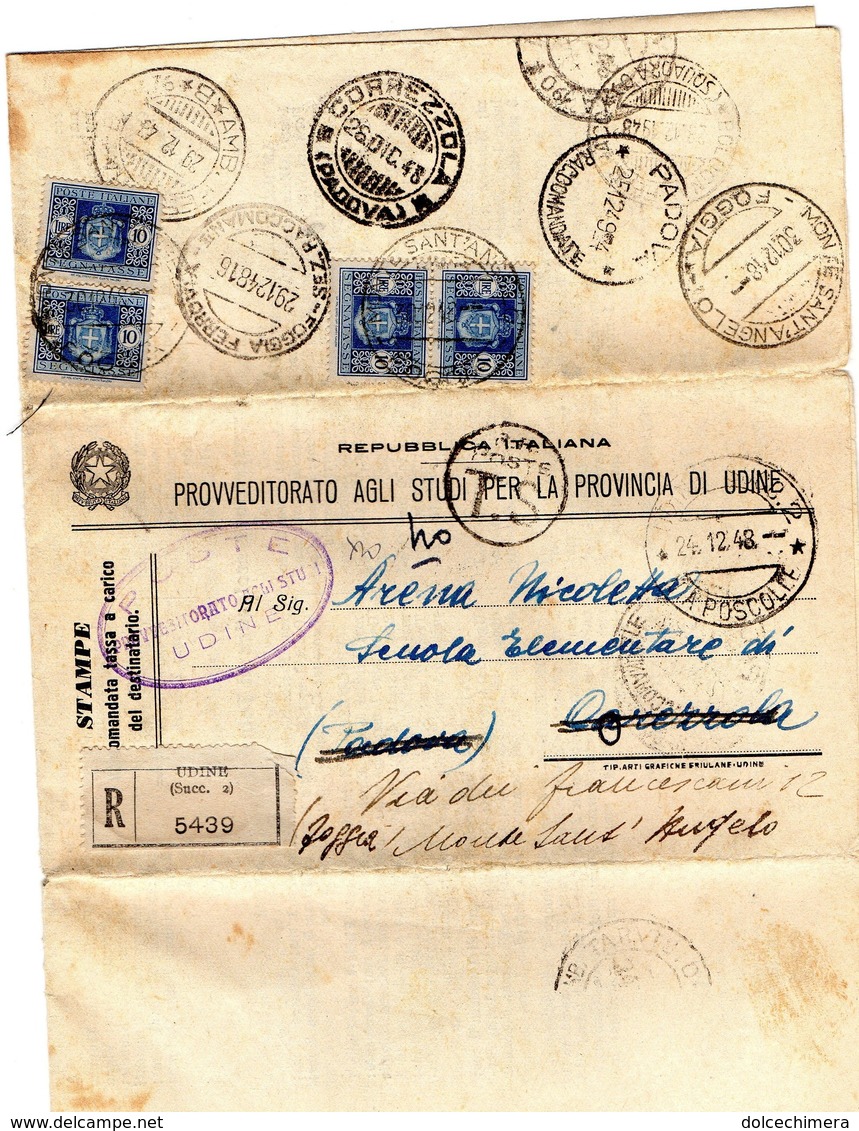 CORREZZOLA
26.DIC.48
(PADOVA)
PADOVA
25.12.94
RACCOMANDATE
FOGGIA
MONTE SANT'ANGELO
30.12.48
FOGGIA FERROVIA
SEZ. RACCOMANE
29.12.48 16
B * AMB.
29.12.48
SANT'ANG
POSTE ITALIANE
LIRE 10
SEGNATASSE
POSTE ITALIANE
LIRE 10
SEGNATASSE
LIRE 10
SEGNATASSE
LIRE 10
SEGNATASSE
REPUBBLICA ITALIANA
PROVVEDITORATO AGLI STUDI PER LA PROVINCIA DI UDINE
POSTE
T.S
24.12.48.
VIA POSCOLLE
POSTE
PROVVEDITORATO AGLI STUDI
UDINE
STAMPE
omandata tassa a carico
del destinatario.
Al Sig.
Arena Nicoletta
Scuola Elementare di
(Padova) Corezzola
TIP. ARTI GRAFICHE FRIULANE - UDINE
R
UDINE
(Succ. 2)
5439
Via dei francescani 12
(Foggia) Monte Sant' Angelo
TARVIS
dolcechimera